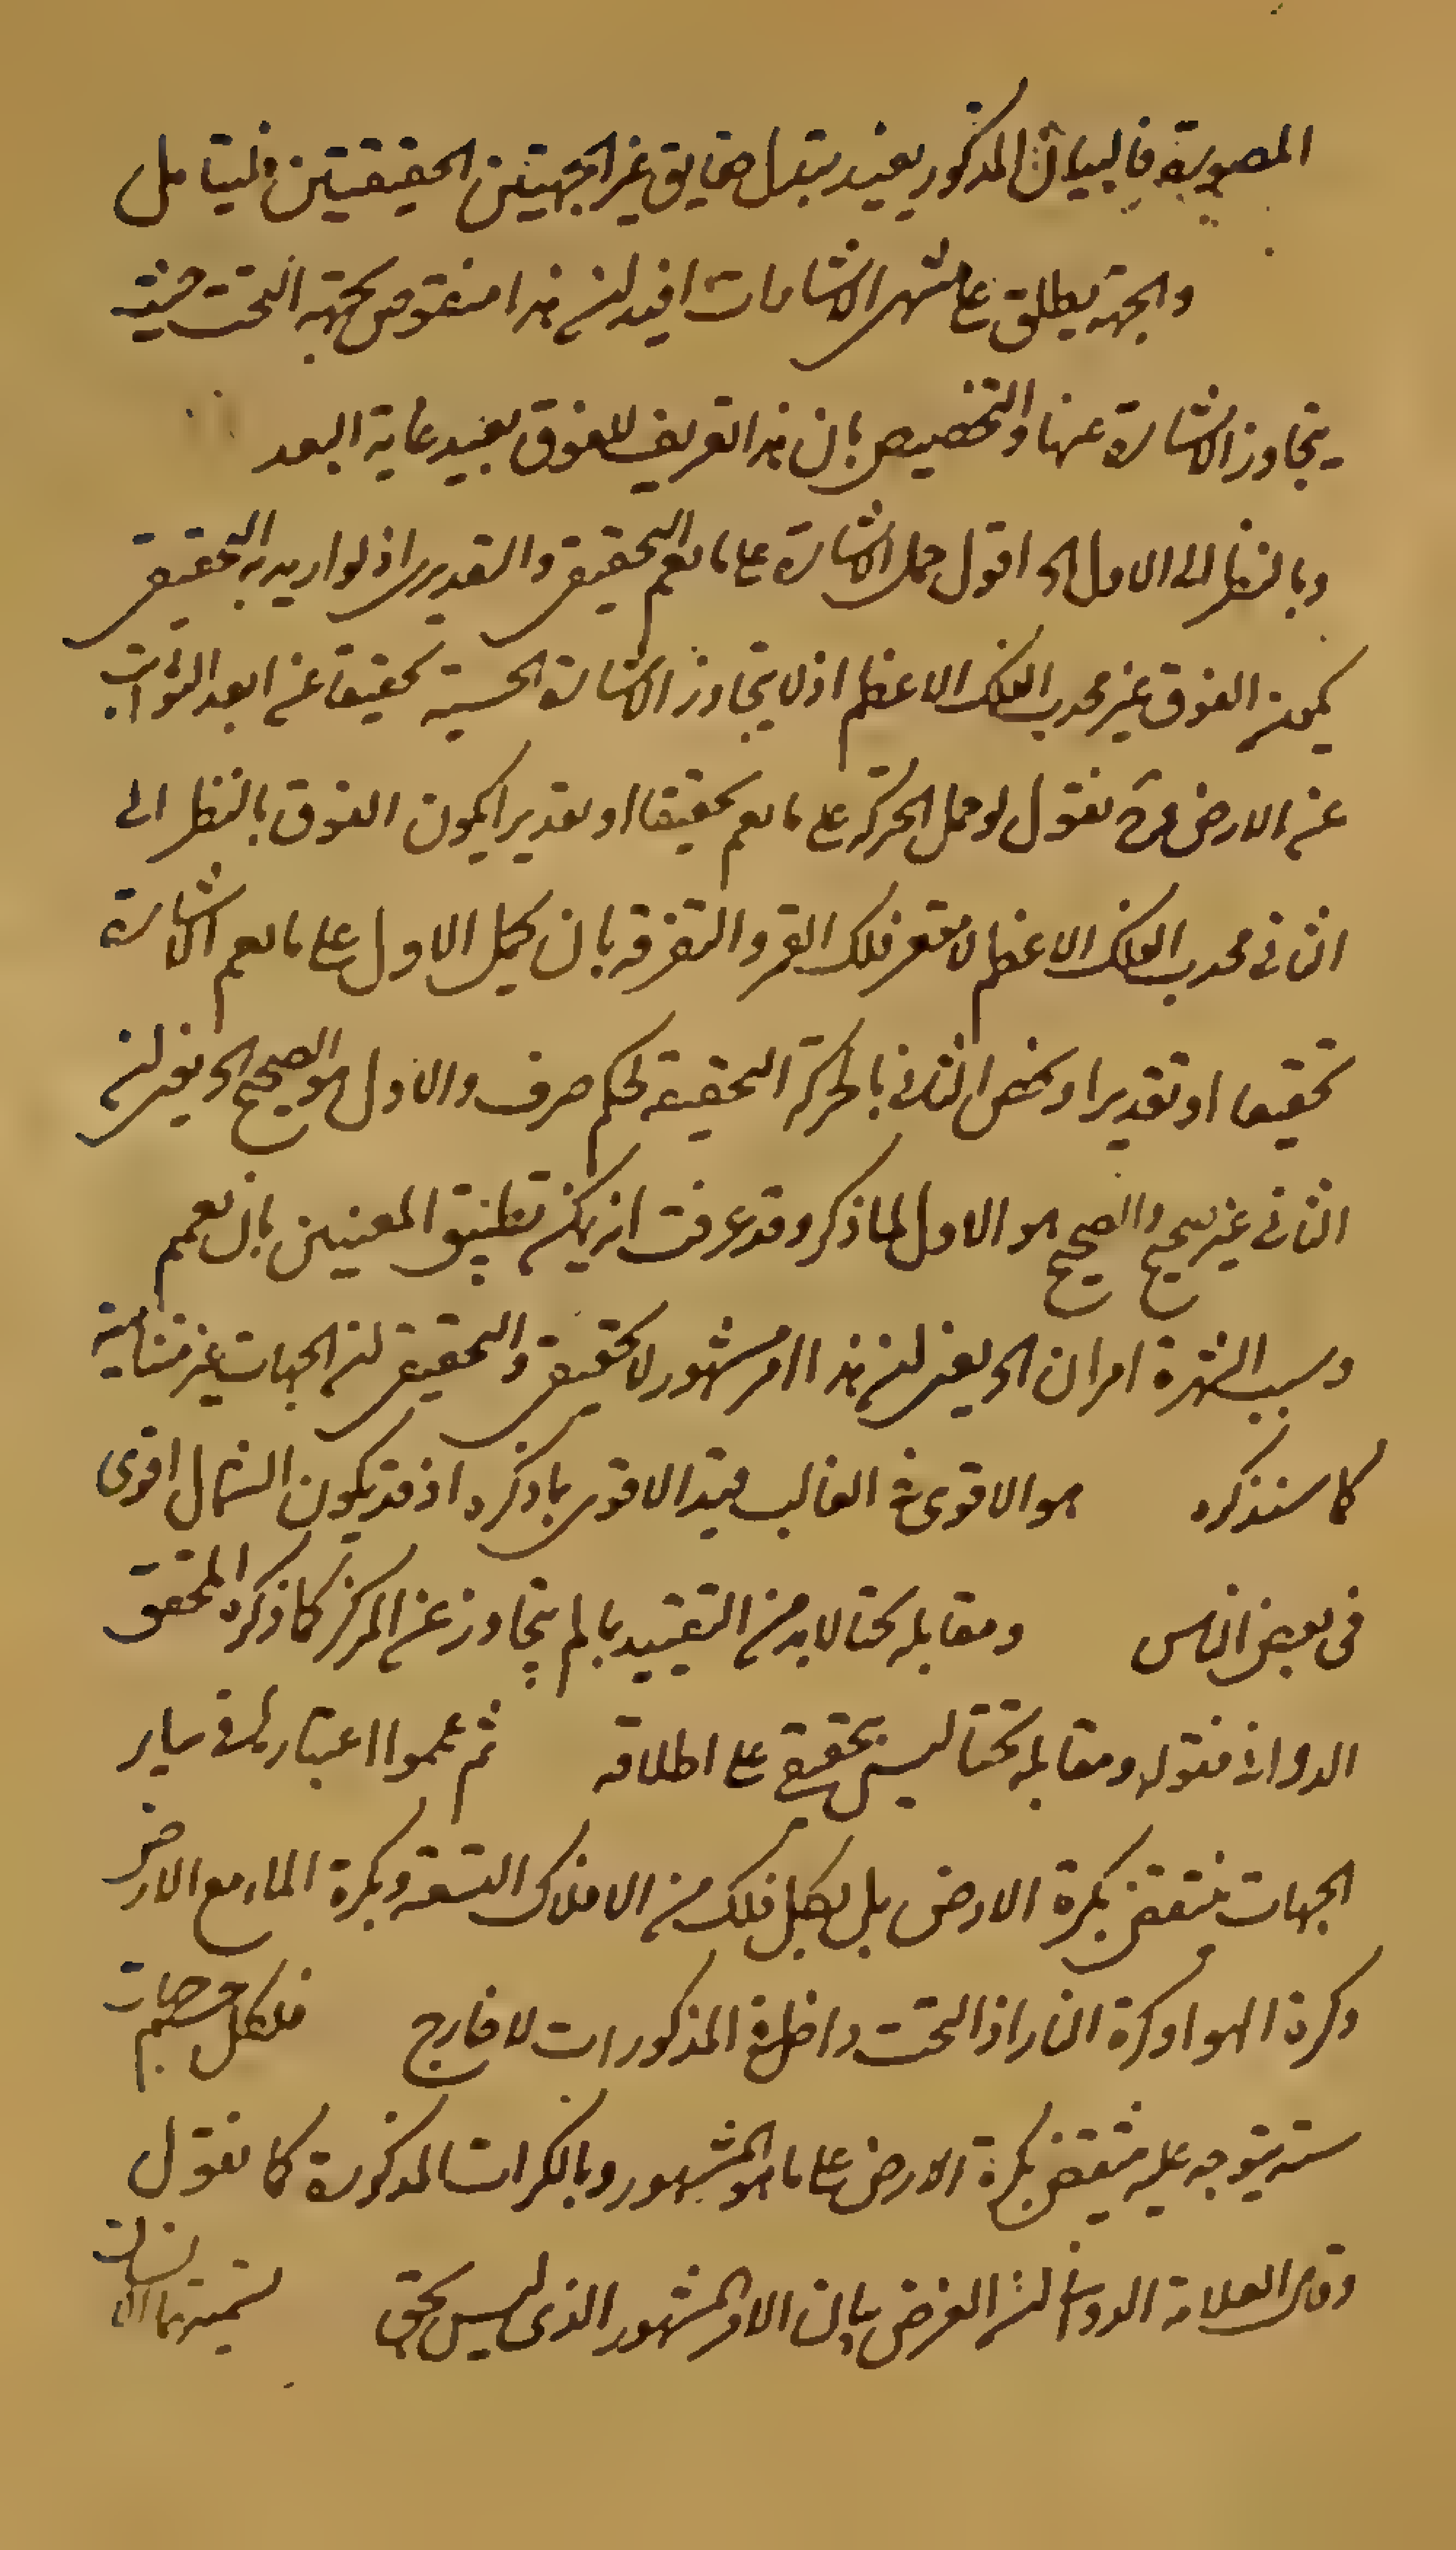 المصورة فالبيان المذكور يفيد بتبدل حقايق غير الجهتين الحقيقيتين فليتامل
والجهة يطلق على منتهى الاشارات افيد ان هذا منقوض بجهة التحت حيث
يتجاوز الاشارة عنها والتخصيص بان هذا تعريف للفوق بعيد غاية البعد
وبالنظر الى الاول الخ اقول حمل الاشارة على ما يعم التحقيقى والتقديرى اذ لو اريد به التحقيقى
يكون الفوق غير محدب الفلك الاعظم اذ لا يتجاوز الاشارة الحسية تحقيقا عن ابعد الثوابت
عن الارض نقول لو حمل الحركة على ما يعم تحقيقا او تقديرا يكون الفوق بالنظر الى
الثانى محدب الفلك الاعظم لا مقعر فلك القمر والتفرقة بان يحمل الاول على ما يعم الاشارة
تحقيقا او تقديرا ويخص الثانى بالحركة التحقيقية تحكم صرف والاول هو الصحيح الخ يعنى ان
الثانى غير صحيح والصحيح هو الاول لما ذكر وقد عرفت انه يمكن تطبيق المعنيين بان يعمم
وسبب الشهرة امران الخ يعنى ان هذا امر مشهور لا تحقيقى والتحقيقى ان الجهات غير متناهية
كما سنذكره هو الاقوى فى الغالب قيد الاقوى بما ذكره اذ قد يكون الشمال اقوى
فى بعض الناس ومقابله تحتا لا بد من التقييد بما لم يتجاوز عن المركز كما ذكره المحقق
الدوانى فقوله ومقابله تحتا ليس بحقيقى على اطلاقه ثم عمموا اعتبارها فى ساير
الجهات ينتقض بكرة الارض بل بكل فلك من الافلاك التسعة وبكرة الماء مع الارض
وكرة الهوا وكرة النار اذ التحت داخل فى المذكورات لا خارج فلكل جسم جهات
ستة يتوجه عليه منتقض بكرة الارض على ما هو المشهور وبالكرات المذكورة كما نقول
وقال العلامة الدوانى ان الغرض بيان الامر المشهور الذى ليس بحق تسميتها الانسان